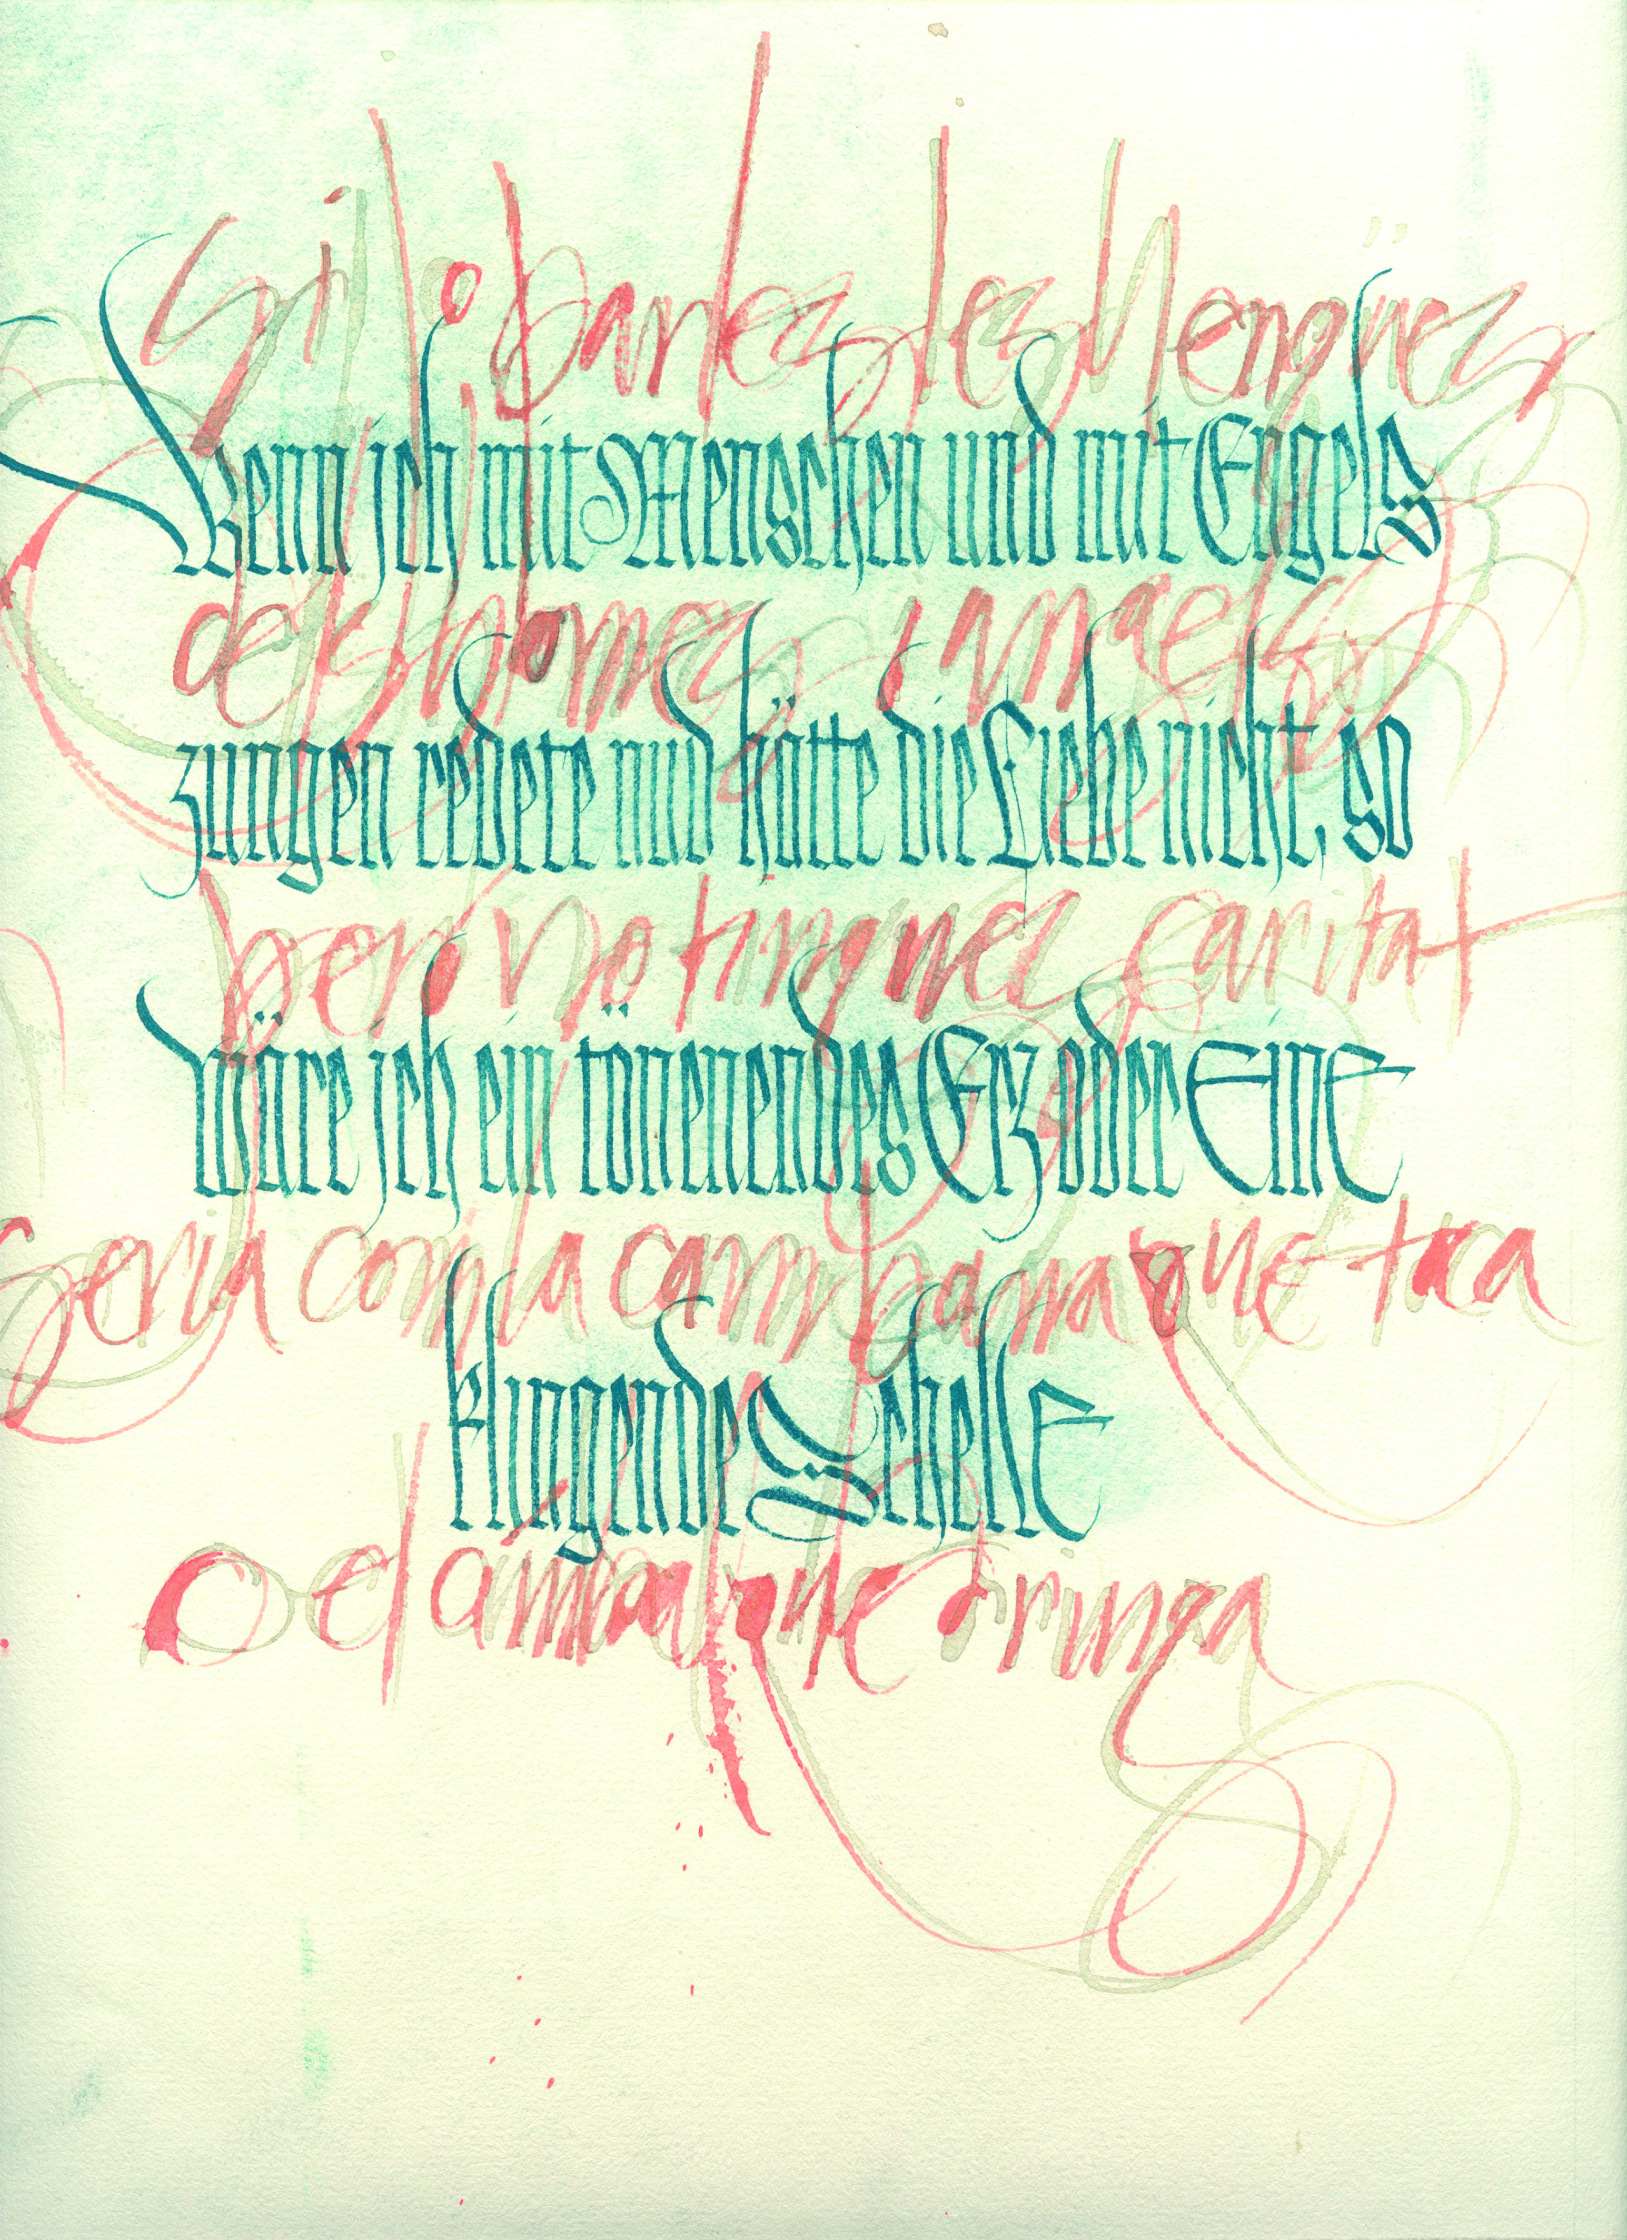 Si jo parles les llengües
Wenn ich mit Menschen und mit Engels
dels homes i àngels
zungen redete und hätte die Liebe nicht, so
però no tingués caritat
wäre ich ein tönenendes Erz oder eine
seria com la campana que toca
klingende Schelle
o el címbal que dringa